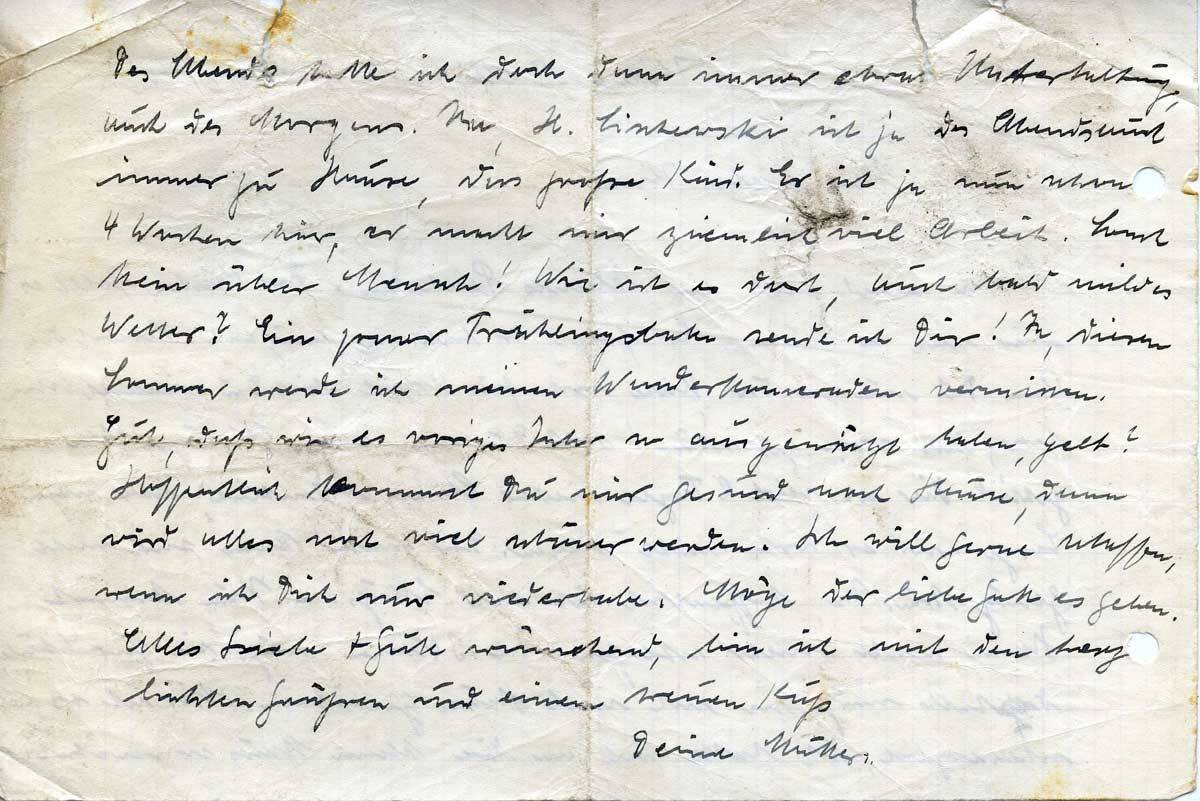 Des Abends hatte ich doch dann immer etwas Unterhaltung,
auch des Morgens. Nu, H. Lintewski ist ja des Abends auch
immer zu Hause, das große Kind. Er ist ja nun schon
4 Wochen hier, er macht mir ziemlich viel Arbeit. Sonst
kein übler Mensch! Wie ist es dort, auch bald mildes
Wetter? Ein Frühlingsbote sende ich Dir! Ja, diesen
Sommer werde ich meinen Wanderkameraden vermissen.
Gut, daß wir es voriges Jahr so ausgenützt haben, gelt?
Hoffentlich kommst Du mir gesund nach Hause, dann
wird alles noch viel schöner werden. Ich will gerne schaffen,
wenn ich Dich nur wiederhabe. Möge der liebe Gott es geben.
Alles Liebe + Gute wünschend, bin ich mit den herz
lichsten Grüßen und einem treuen Kuß
Deine Mutter.